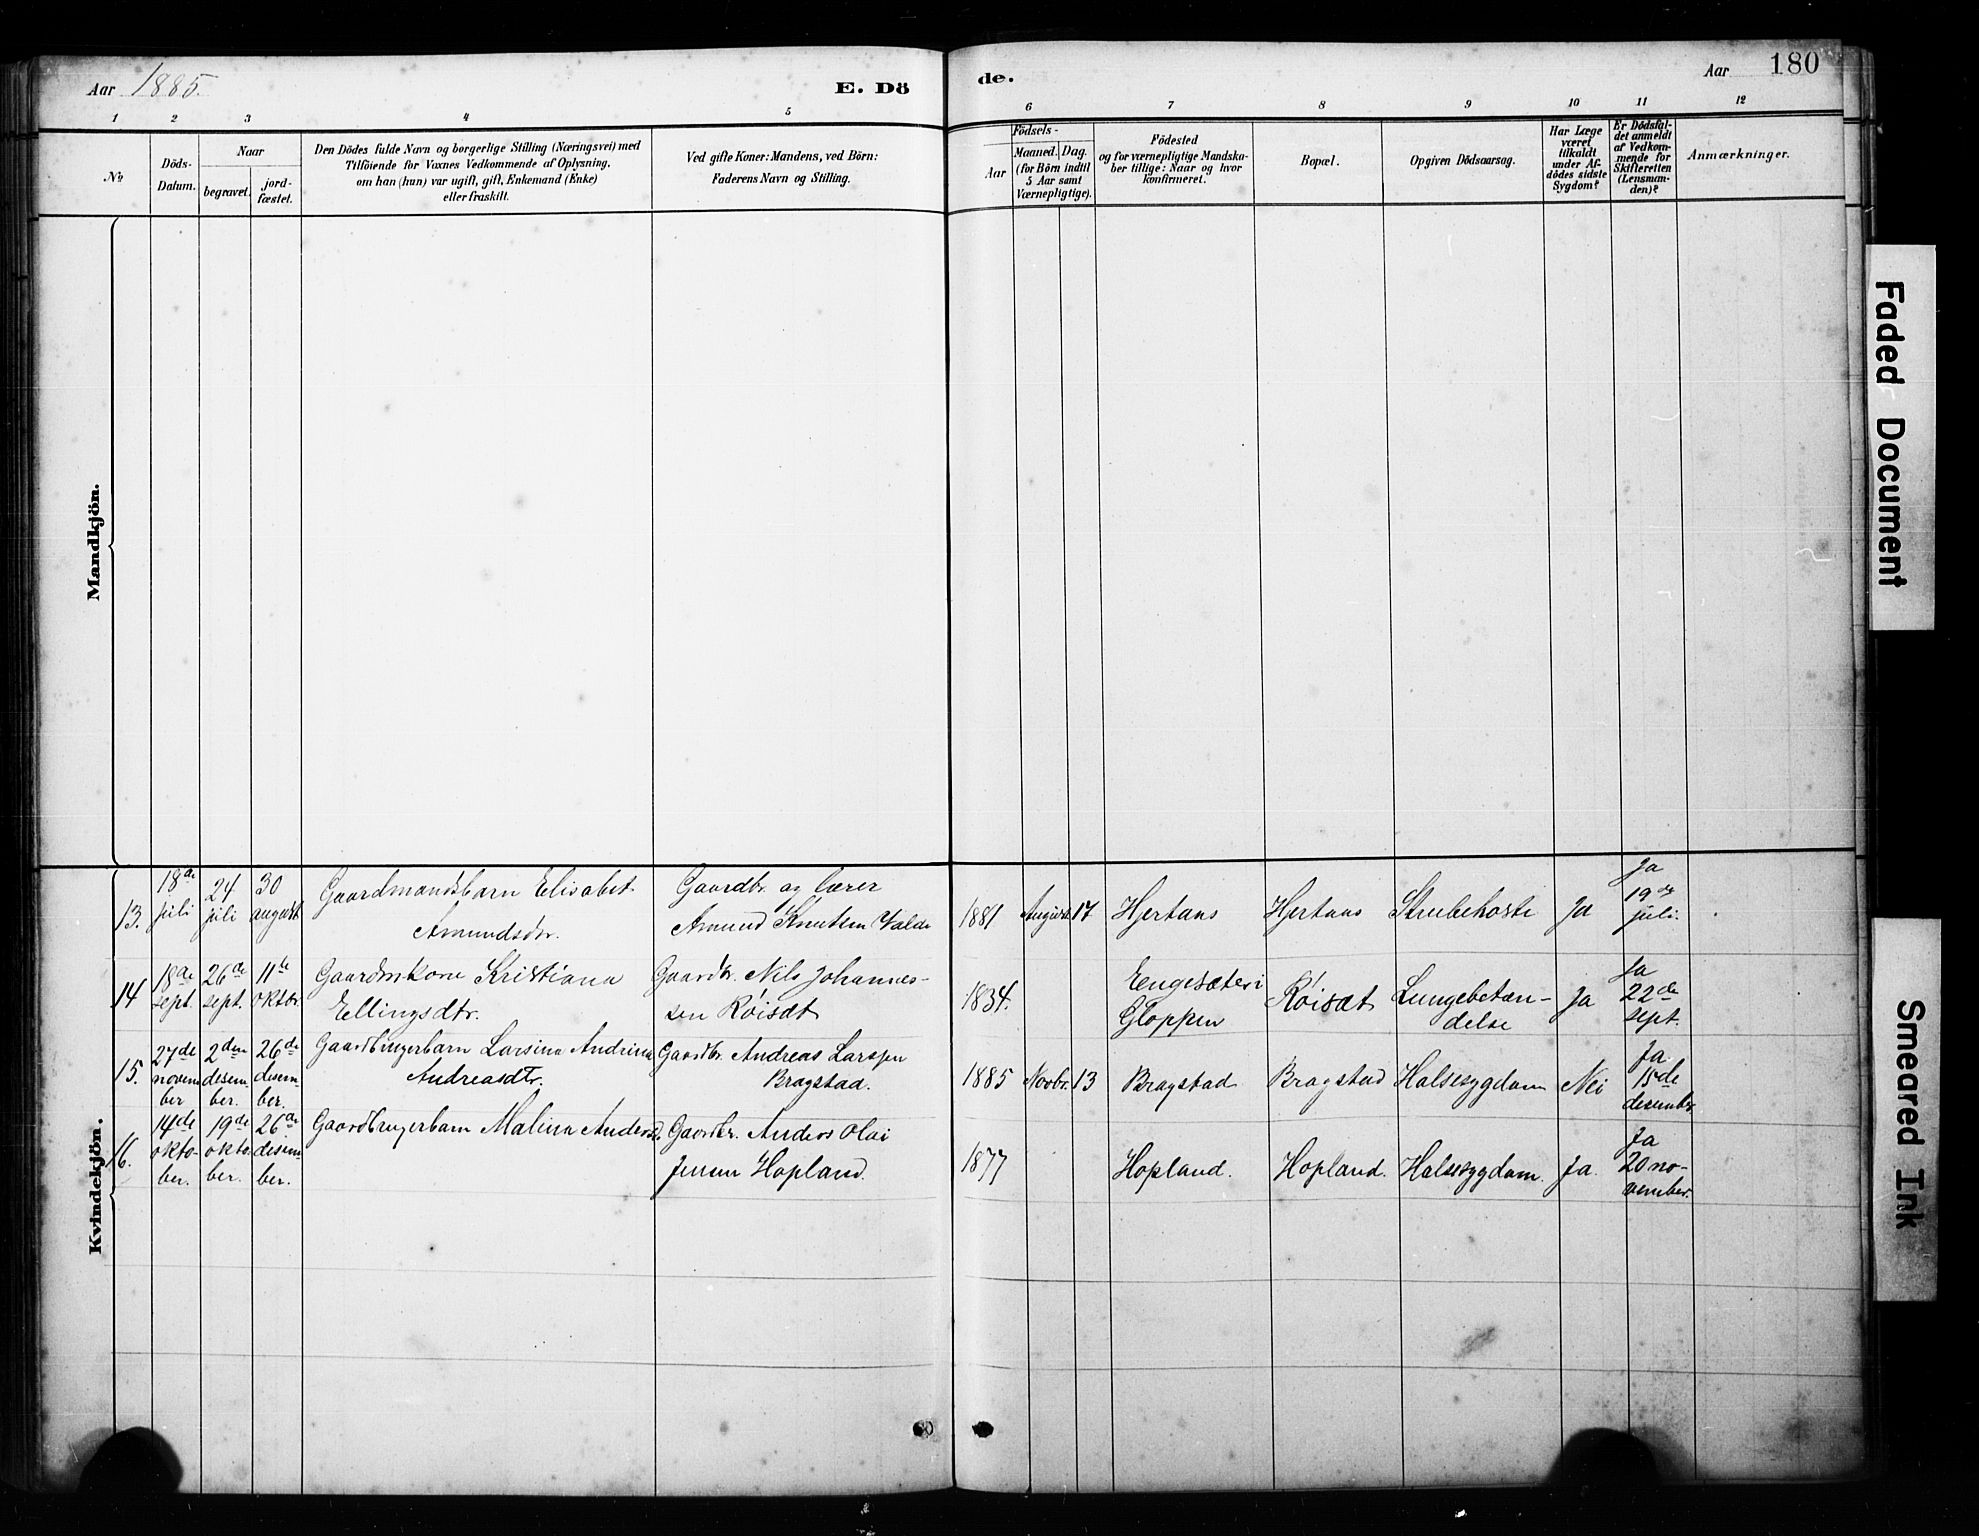 Aar 1885.
E. Dö
de.
Aar
180
1 2 3 4 5 6 7 8 9 10 11 12
No
Döds-
Datum.
Naar
begravet.
jord-
fæstet.
Den Dödes fulde Navn og borgerlige Stilling (Næringsvei) med
Tilföiende for Voxnes Vedkommende af Oplysning,
om han (hun) var ugift, gift, Enkemand (Enke)
eller fraskilt.
Ved gifte Koner: Mandens, ved Börn:
Faderens Navn og Stilling.
Födsels-
Aar
Maaned. Dag.
(for Börn indtil
5 Aar samt
Værnepligtige).
Födested
og for værnepligtige Mandska-
ber tillige: Naar og hvor
konfirmeret.
Bopæl.
Opgiven Dödsaarsag.
Har Læge
været
tilkaldt
under Af-
dödes sidste
Sygdom?
Er Dödsfal-
det anmeldt
af Vedkom-
mende for
Skifteretten
(Lensman-
den)?
Anmærkninger.
Mandkjön.
Kvindekjön.
13.
18de
juli
24
juli
30
august
Gaardmandsbarn Elisabet
Amundsdr.
Gaardbr. og lærer
Amund Knutsen Valde
1881
August
17
Hjertaas
Hjertaas
Strubehoste
Ja
Ja
19de
juli.
14
18de
sept.
26de
sept.
11te
oktbr.
Gaardmkone Kristiana
Ellingsdtr.
Gaardbr. Nils Johannes-
sen Röisæt
1834.
Eengesæter i
Gloppen
Röisæt
Lungebetæn-
delse
Ja
Ja
22de
sept.
15.
27de
novem
ber
2den
desem-
ber.
26de
desem-
ber.
Gaardbrugerbarn Larsina Andrina
Andreasdtr.
Gaardbr. Andreas Larssen
Bragstad.
1885
Novbr.
13
Bragstad
Bragstad
Halsesygdom
Nei
Ja
15de
desember
16.
14de
okto-
ber.
19de
okto-
ber.
26de
desem-
ber.
Gaardbrugerbarn Malina Andersd.
Gaardbr. Anders Olai
Jensen Hopland.
1877
Hopland.
Hopland.
Halsesygdom.
Ja.
Ja
20 no-
vember.
Faded Document
Smeared Ink